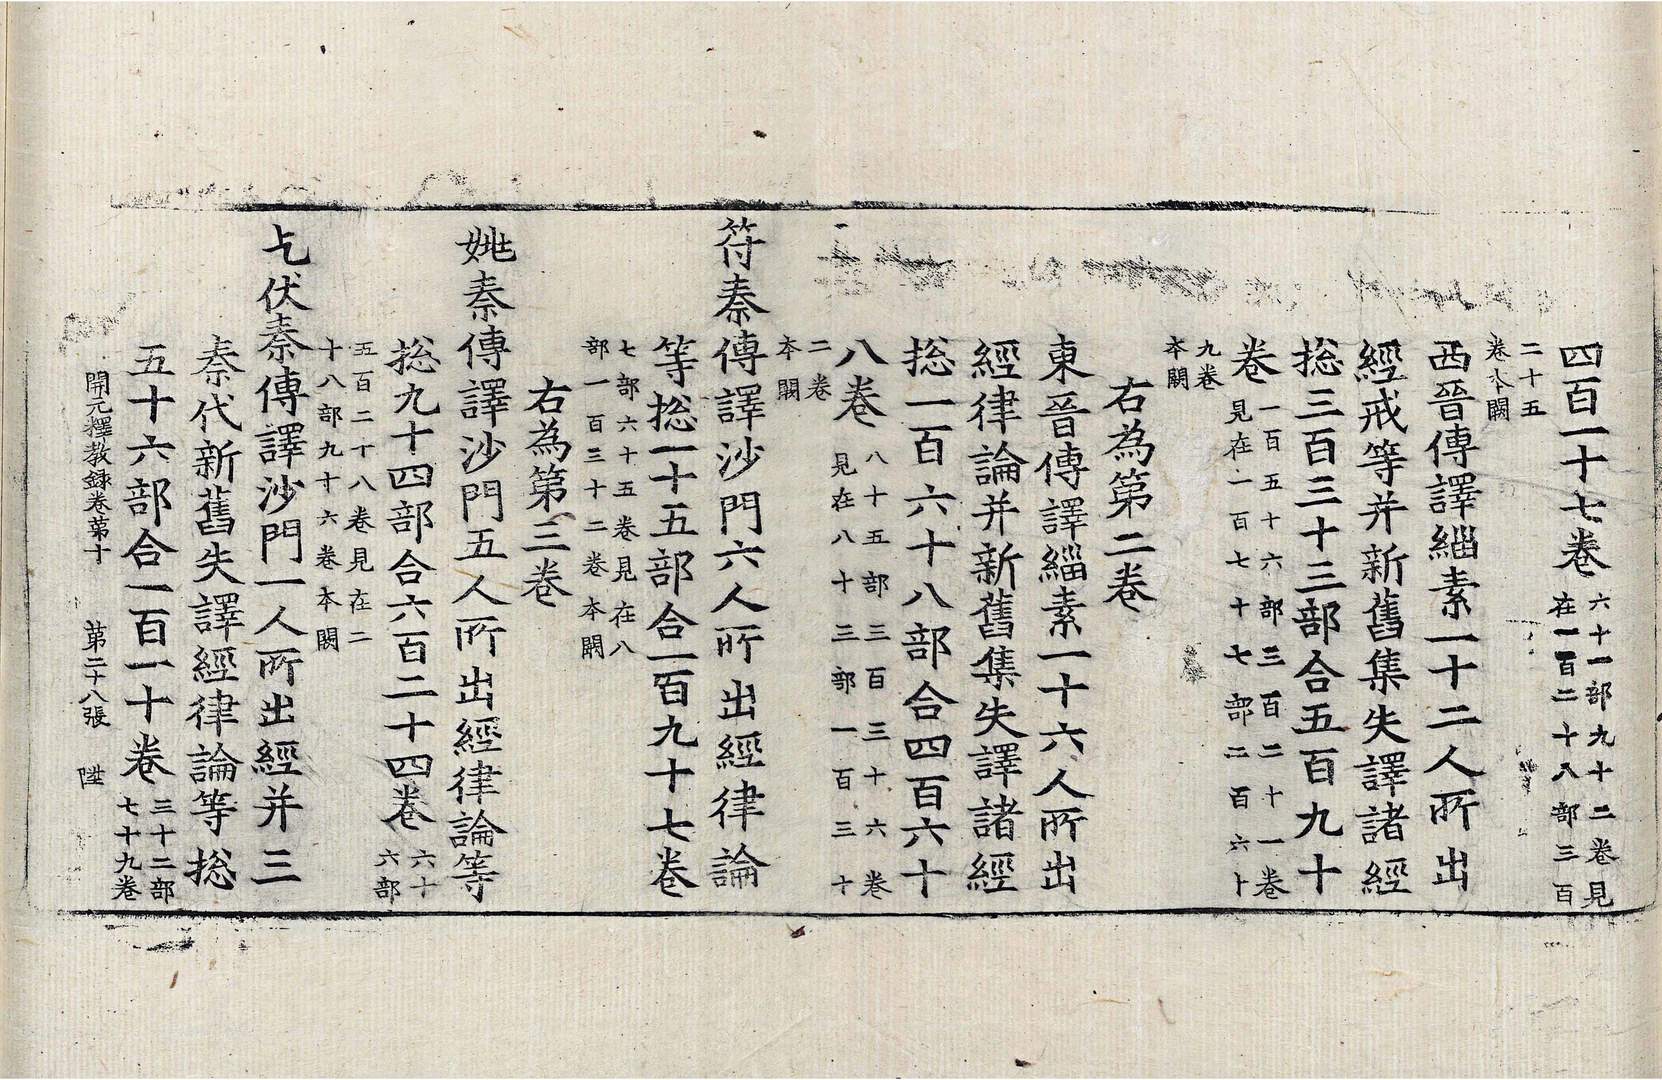 四百一十七卷六十一部九十二卷見
在一百二十八部三百
二十五
卷本闕
西晉傳譯緇素一十二人所出
經戒等并新舊集失譯諸經
捴三百三十三部合五百九十
卷一百五十六部三百二十一卷
見在一百七十七部二百六十
九卷
本闕
右為第二卷
東晉傳譯緇素一十六人所出
經律論并新舊集失譯諸經
捴一百六十八部合四百六十
八卷八十五部三百三十六卷
見在八十三部一百三十
二卷
本闕
符秦傳譯沙門六人所出經律論
等捴一十五部合一百九十七卷
七部六十五卷見在八
部一百三十二卷本闕
右為第三卷
姚秦傳譯沙門五人所出經律論等
捴九十四部合六百二十四卷六十
六部
五百二十八卷見在二
十八部九十六卷本闕
乞伏秦傳譯沙門一人所出經并三
秦代新舊失譯經律論等捴
五十六部合一百一十卷三十二部
七十九卷
開元釋教録卷第十 第二十八張 陞